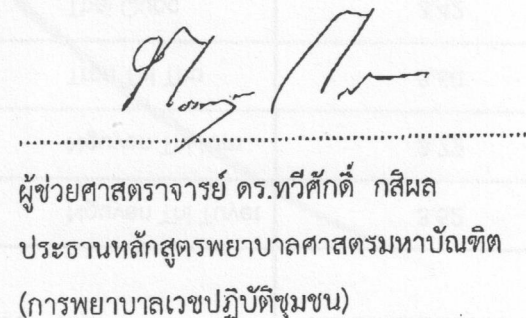 ผู้ช่วยศาสตราจารย์ ดร.ทวีศักดิ์ กสิผล
ประธานหลักสูตรพยาบาลศาสตรมหาบัณฑิต
(การพยาบาลเวชปฏิบัติชุมชน)